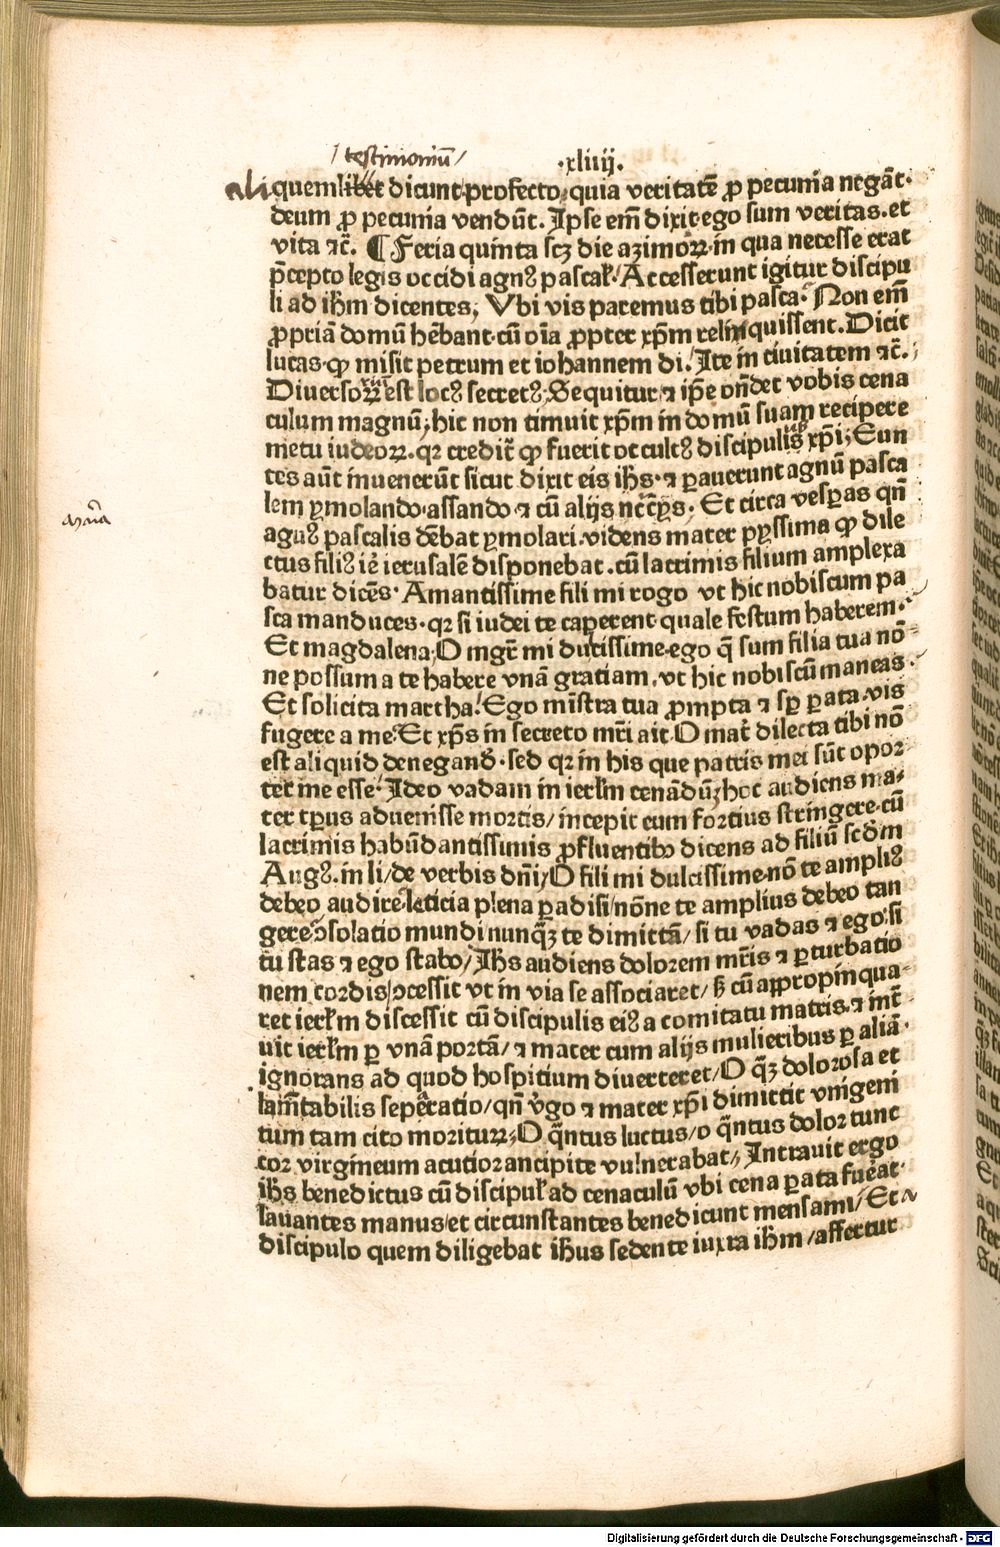 testimoniū
.xliiij.
aliquemlibet dicunt profecto, quia veritatē ꝓ pecunia negāt.
deum ꝓ pecunia vendūt. Ipse em̄ dixit ego sum veritas. et
vita ⁊c̄. ¶ Feria quinta scꝫ die azimoꝝ in qua necesse erat
p̄cepto legis occidi agnꝰ pascal'. Accesserunt igitur discipu
li ad ih̄m dicentes, Vbi vis paremus tibi pasca. Non em̄
ꝓpriā domū hēbant cū oīa ꝓpter xp̄m relinquissent. Dicit
lucas ꝙ misit petrum et iohannem di. Ite in ciuitatem ⁊c̄.
Diuersoꝝ est locꝰ secretꝰ. Sequitur ⁊ ip̄e on̄det vobis cena
culum magnū, hic non timuit xp̄m in domū suam recipere
metu iudeoꝝ. qꝛ credit̄ ꝙ fuerit occultꝰ discipulus xp̄i, Eun
tes aūt inuenerūt sicut dixit eis ih̄s. ⁊ ꝑauerunt agnū pasca
lem ymolando. assando ⁊ cū alijs nc̄c̄ijs. Et circa vesꝑas qn̄
agnꝰ pascalis dēbat ymolari. videns mater pyssima ꝙ dile
ctus filiꝰ iē ierusalē disponebat. cū lacrimis filium amplexa
batur dicēs. Amantissime fili mi rogo vt hic nobiscum pa
sca manduces. qꝛ si iudei te caperent quale festum haberem.
Et magdalena, O mgr̄ mi dulcissime. ego q̄ sum filia tua nō
ne possum a te habere vnā gratiam, vt hic nobiscū maneas.
Et solicita martha. Ego ministra tua ꝓmpta ⁊ sp̄ ꝑata. vis
fugere a me. Et xp̄s in secreto mr̄i ait. O mat̄ dilecta tibi nō
est aliquid denegand̄. sed qꝛ in his que patris mei sūt opor
tet me esse. Ideo vadam in ierl'm cenādū, hoc audiens ma
ter tp̄us aduenisse mortis/ incepit eum fortius stringere. cū
lacrimis habūdantissimis ꝓfluentibꝰ dicens ad filiū scd̄m
Augꝰ. in li/ de verbis dn̄i/ O fili mi dulcissime. nō te ampliꝰ
debeo audire. leticia plena ꝑadisi/ nōne te amplius debeo tan
gere. ꝯsolatio mundi nunqꝫ te dimittā/ si tu vadas ⁊ ego. si
tū stas ⁊ ego stabo/ Ih̄s audiens dolorem mr̄is ⁊ ꝑturbatio
nem cordis/ ꝯcessit vt in via se associaret/ ꝭ cū appropinqua
ret ierl'm discessit cū discipulis eiꝰ a comitatu matris. ⁊ int̄
uit ierl'm ꝑ vnā portā/ ⁊ mater cum alijs mulieribus ꝑ aliā.
ignorans ad quod hospitium diuerteret/ O qꝫ dolorosa et
lam̄tabilis seꝑatio/ qn̄ v̓go ⁊ mater xp̄i dimittit vnigeni
tum tam cito morituꝝ, O q̄ntus luctus/ o q̄ntus dolor tunc
cor virgineum acutior ancipite vulnerabat, Intrauit ergo
ih̄s benedictus cū discipul' ad cenaculū vbi cena ꝑata fuēat.
lauantes manus/ et circunstantes benedicunt mensam/ Et
discipulo quem diligebat ihūs sedente iuxta ih̄m /affertur
Digitalisierung gefördert durch die Deutsche Forschungsgemeinschaft - DFG